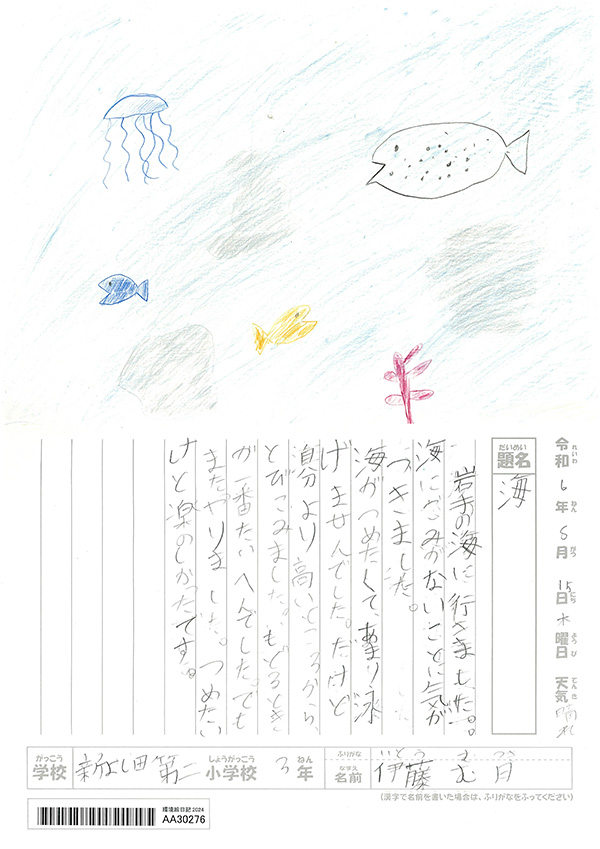 令和6年8月15日木曜日 天気 晴れ
れいわ ねん がつ にち ようび てんき
だいめい
題名 海
岩手の海に行きました。
海にごみがないことに気が
つきました。
海がつめたくて、あまり泳
げませんでした。だけど
自分より高いところから、
とびこみました。もどるとき
が一番たいへんでした。でも
またやりました。つめたい
けど楽のしかったです。
がっこう しょうがっこう ねん ふりがな いとう む
学校 新よし田第二 小学校 3年 なまえ 名前 伊藤 む月
(漢字で名前を書いた場合は、ふりがなをふってください)
環境絵日記2024
AA30276